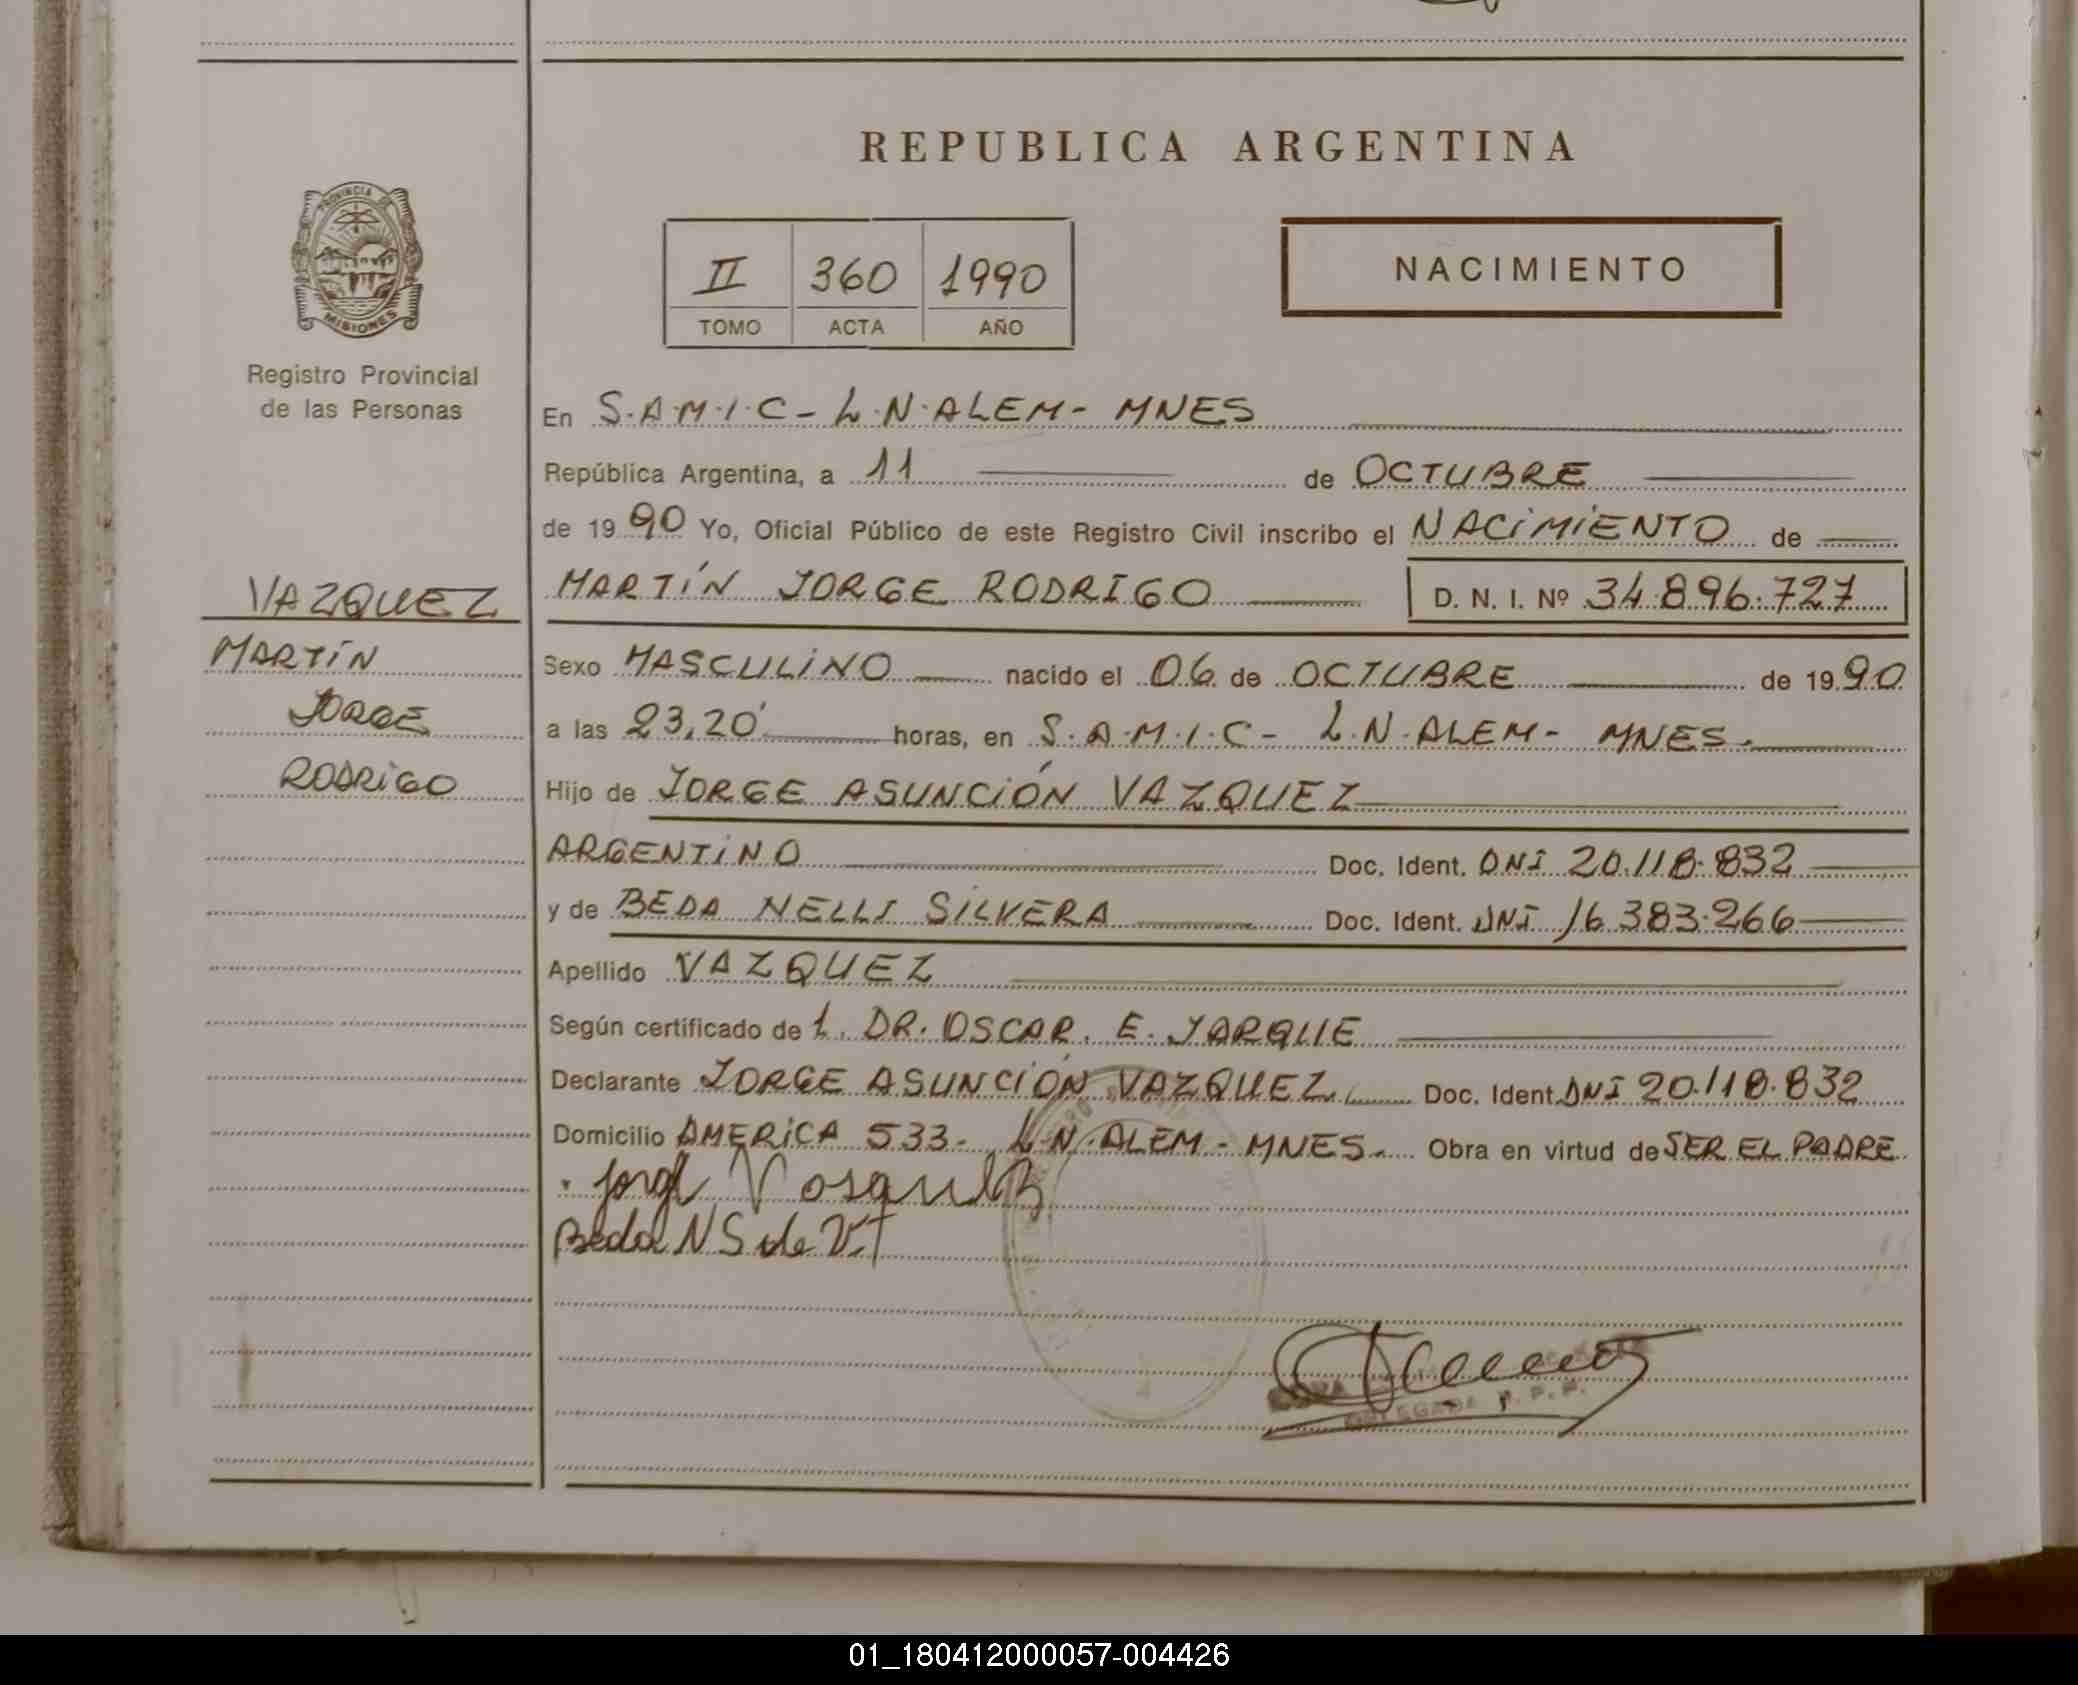 REPUBLICA ARGENTINA
PROVINCIA DE
MISIONES
Registro Provincial
de las Personas
II 360 1990
TOMO ACTA AÑO
NACIMIENTO
En S.A.M.I.C - L.N.ALEM - MNES
República Argentina, a 11 de OCTUBRE
de 1990 Yo, Oficial Público de este Registro Civil inscribo el NACIMIENTO de
MARTÍN JORGE RODRIGO D. N. I. Nº 34.896.727
VAZQUEZ
MARTÍN
JORGE
RODRIGO
Sexo MASCULINO nacido el 06 de OCTUBRE de 1990
a las 23,20' horas, en S.A.M.I.C - L.N.ALEM - MNES.
Hijo de JORGE ASUNCIÓN VAZQUEZ
ARGENTINO Doc. Ident. DNI 20.118.832
y de BEDA NELLI SILVERA Doc. Ident. DNI 16.383.266
Apellido VAZQUEZ
Según certificado de L. DR. OSCAR. E. JARQUE
Declarante JORGE ASUNCIÓN VAZQUEZ. Doc. Ident. DNI 20.118.832
Domicilio AMERICA 533 - L.N.ALEM - MNES. Obra en virtud de SER EL PADRE
Jorge Vasquez
Beda N S de V.
DELEGADA R. P. P.
01_180412000057-004426